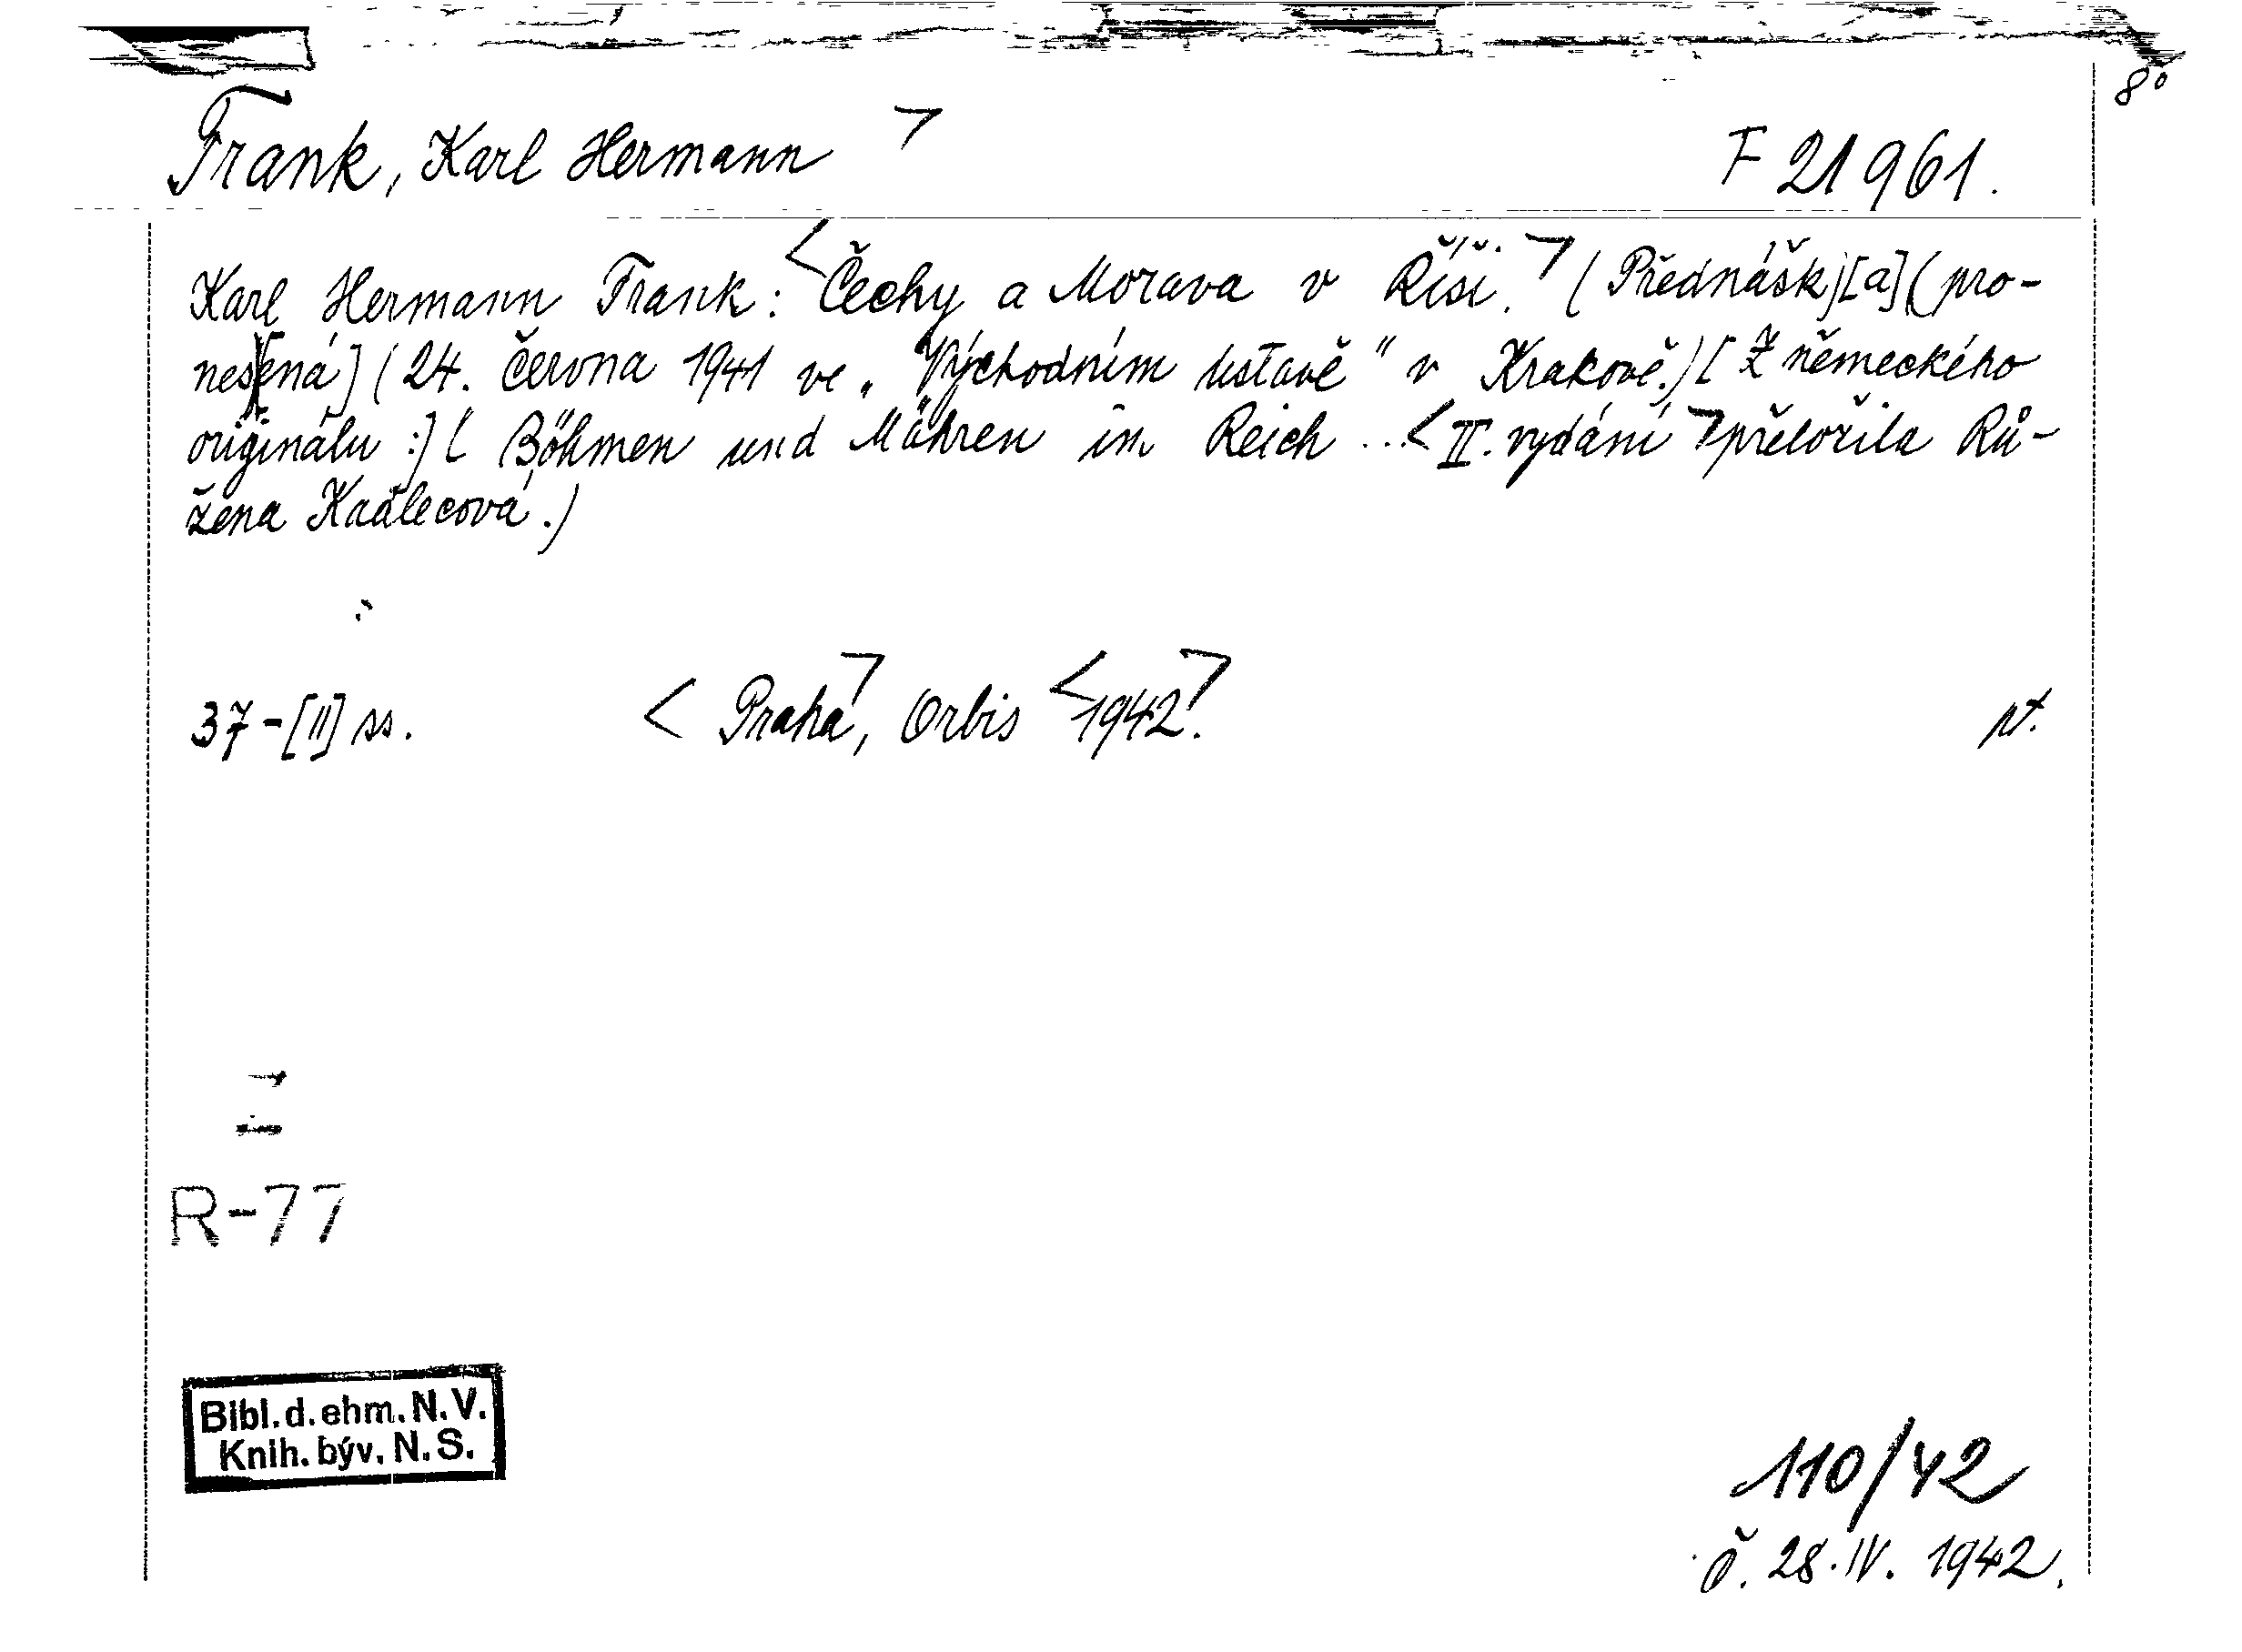 8°
Frank, Karl Hermann > F 21961.
Karl Hermann Frank: <Čechy a Morava v Říši.> (Přednášk)[a](pro-
nes[ená](24. června 1941 ve „Východním ústavě" v Krakově.)[Z německého
originálu:]( Böhmen und Mähren im Reich ...< II. vydání > přeložila Rů-
žena Kadlecová.)
37-[II] ss. < Praha>, Orbis <1942>.
R-77
Bibl. d. ehm. N. V.
Knih. býv. N. S.
110/42
28. IV. 1942.